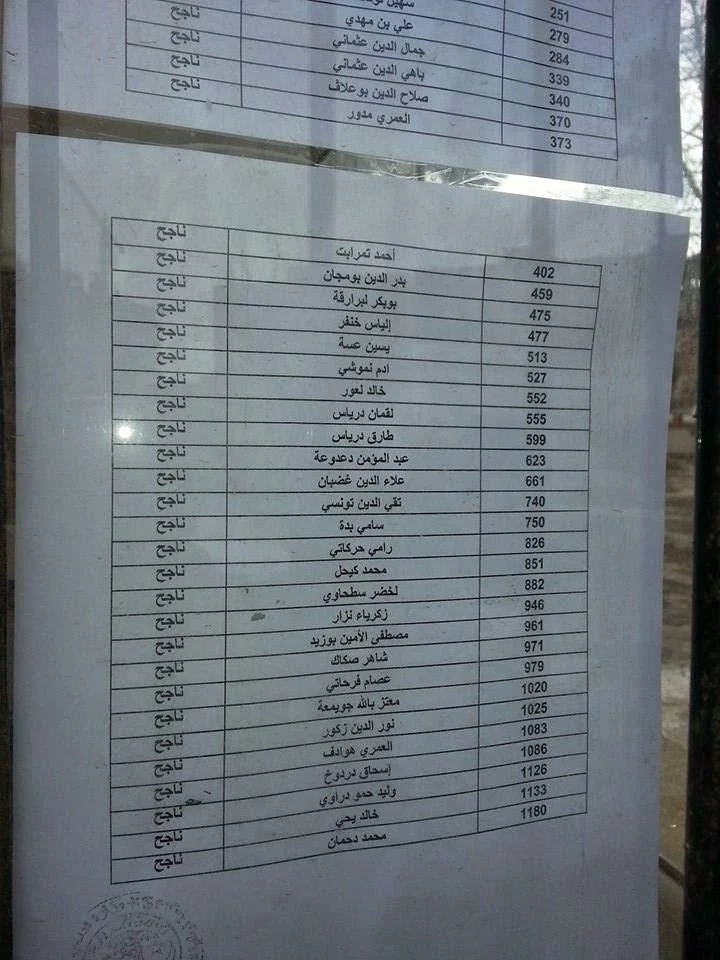 251
279 سهيل
284 علي بن مهدي
339 جمال الدين عثماني ناجح
340 باهي الدين عثماني ناجح
370 صلاح الدين بوعلاف ناجح
373 العمري مدور ناجح
402 أحمد تمرابت ناجح
459 بدر الدين بومجان ناجح
475 بوبكر لبرارقة ناجح
477 إلياس خنفر ناجح
513 يسين عسة ناجح
527 ادم نموشي ناجح
552 خالد لعور ناجح
555 لقمان درياس ناجح
599 طارق درياس ناجح
623 عبد المؤمن دعدوعة ناجح
661 علاء الدين غضبان ناجح
740 تقي الدين تونسي ناجح
750 سامي بدة ناجح
826 رامي حركاتي ناجح
851 محمد كيحل ناجح
882 لخضر سطحاوي ناجح
946 زكرياء نزار ناجح
961 مصطفى الأمين بوزيد ناجح
971 شاهر صكاك ناجح
979 عصام فرحاتي ناجح
1020 معتز بالله جويمعة ناجح
1025 نور الدين زكور ناجح
1083 العمري هوادف ناجح
1086 إسحاق دردوخ ناجح
1126 وليد حمو دراوي ناجح
1133 خالد يحي ناجح
1180 محمد دحمان ناجح